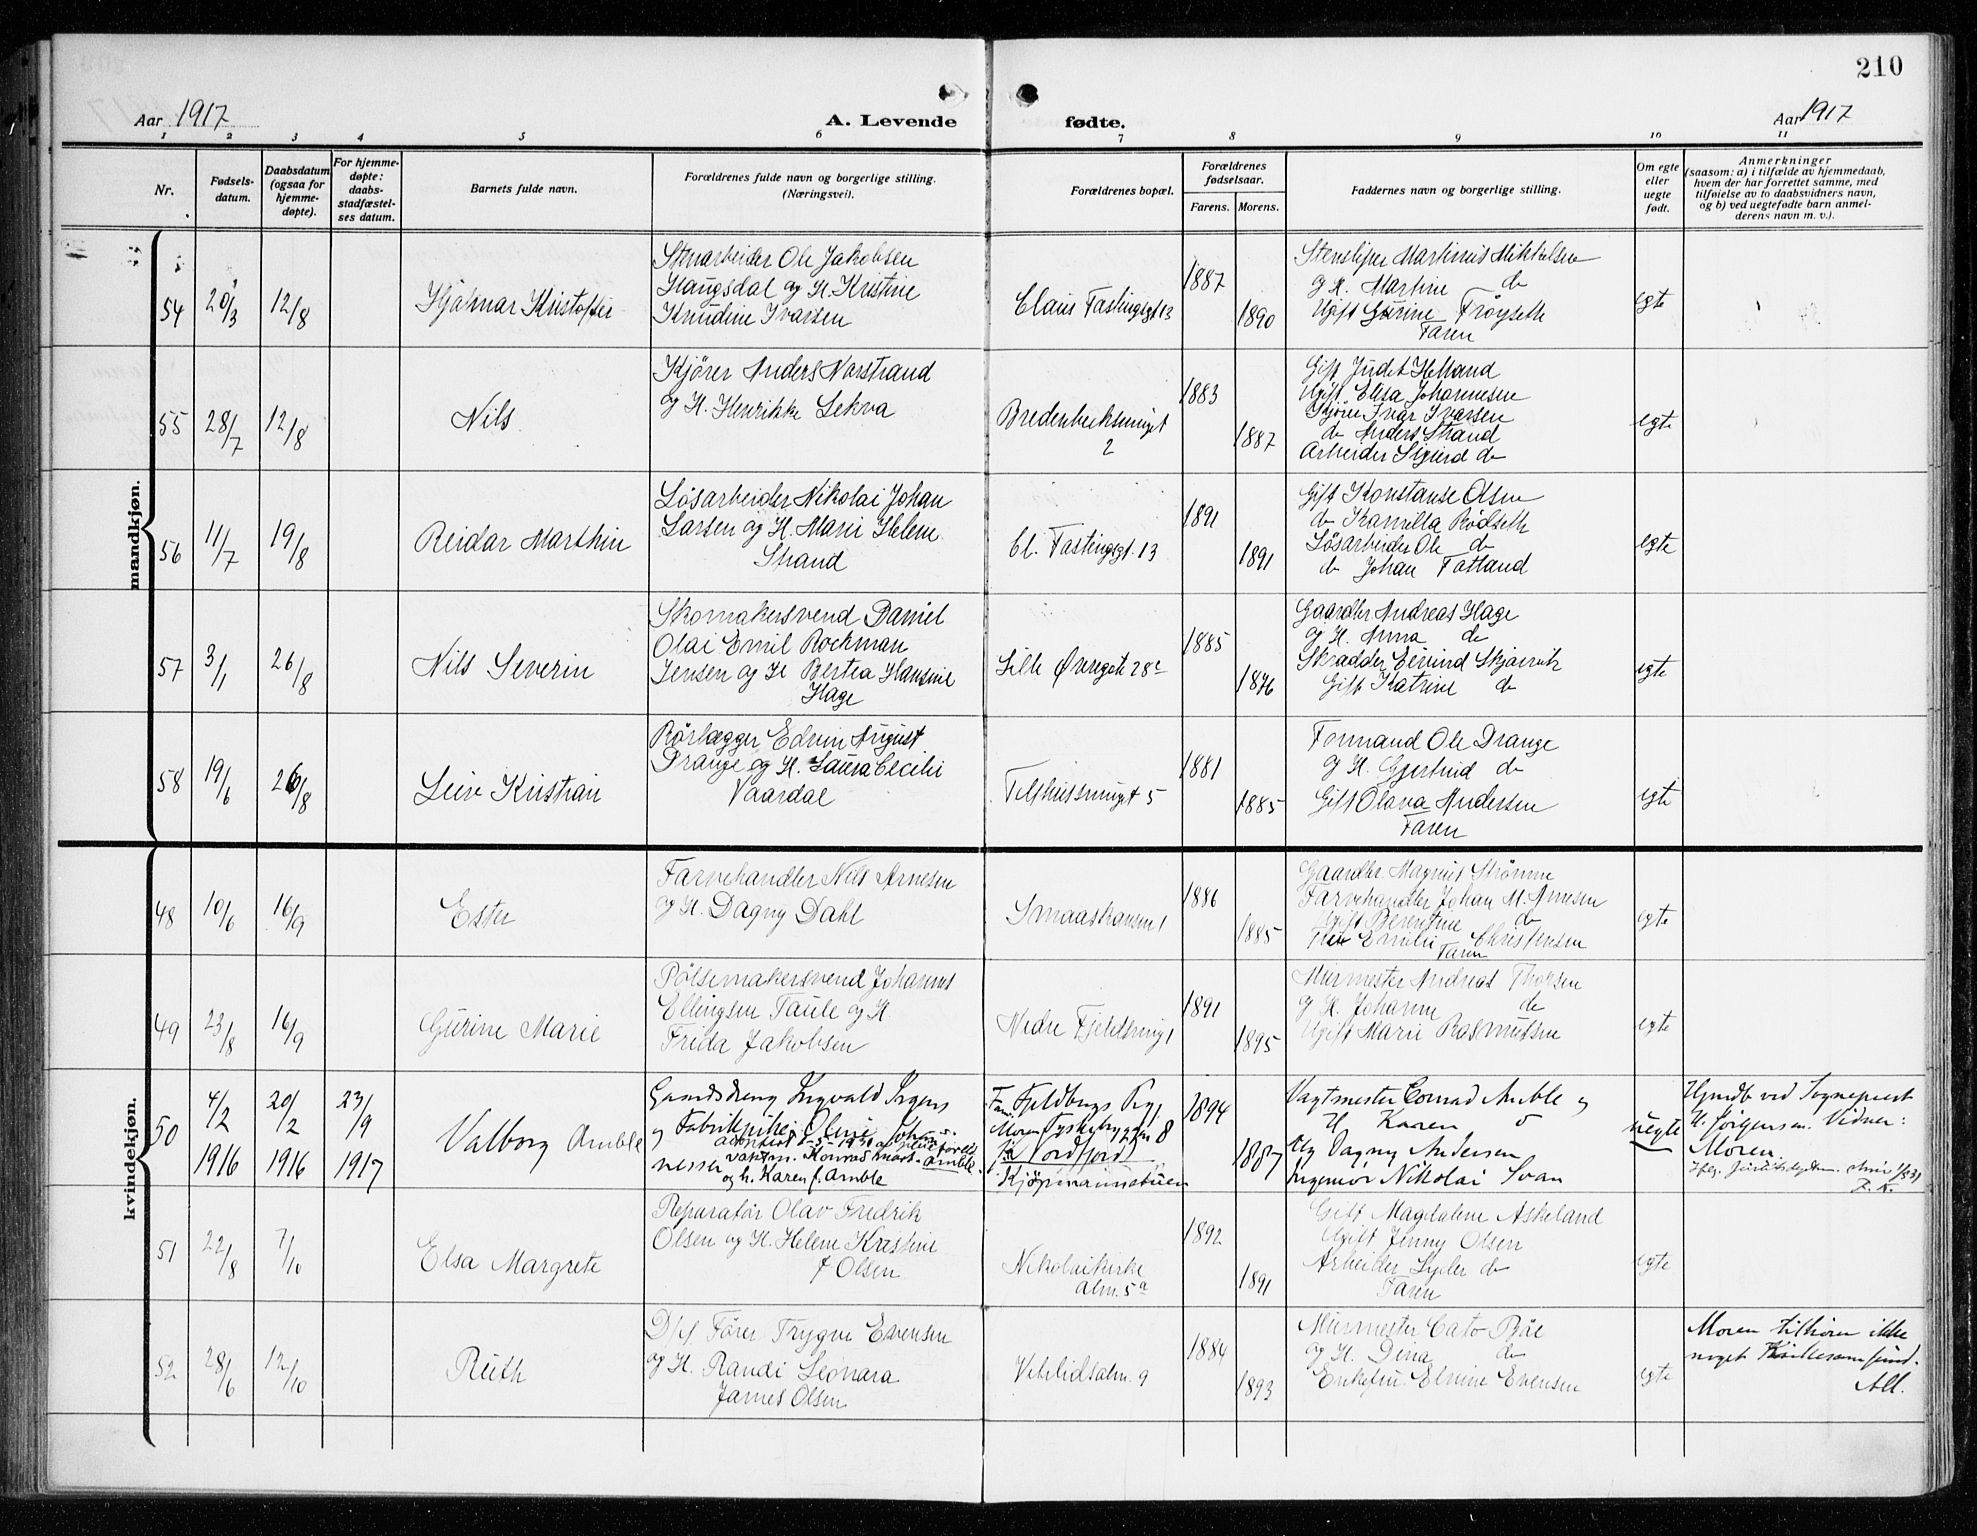 210
Aar 1917
A. Levende
fødte.
Aar 1917
1 2 3 4 5 6 7 8 9 10 11
Nr.
Fødsels-
datum.
Daabsdatum
(ogsaa for
hjemme-
døpte).
For hjemme-
døpte:
daabs-
stadfæstel-
ses datum.
Barnets fulde navn.
Forældrenes fulde navn og borgerlige stilling.
(Næringsvei).
Forældrenes bopæl.
Forældrenes
fødselsaar.
Farens. Morens.
Faddernes navn og borgerlige stilling.
Om egte
eller
uegte
født.
Anmerkninger
(saasom: a) i tilfælde av hjemmedaab,
hvem der har forrettet samme, med
tilføielse av to daabsvidners navn,
og b) ved uegtefødte barn anmel-
derens navn m. v.).
mandkjøn.
54
20/3
12/8
Hjalmar Kristoffer
Stenarbeider Ole Jakobsen
Haugsdal og H. Kristine
Knudine Ivarsen
Claus Fastingsgt 13
1887
1890
Stensliper Martinus Mikkelsen
og H. Martine do
Ugift Gurine Frøyseth
Faren
egte
55
28/7
12/8
Nils
Kjører Anders Norstrand
og H. Henrikke Lekva
Bredenbecksmuget
2
1883
1887
Gift Judit Helland
Ugift Elisa Johannesen
Kjører Ivar Ivarsen
do Anders Strand
Arbeider Sigurd do
egte
56
11/7
19/8
Reidar Marthin
Løsarbeider Nikolai Johan
Larsen og H. Marie Helene
Strand
Cl. Fastingsgt. 13
1891
1891
Gift Konstanse Olsen
do Kamilla Rødseth
Løsarbeider Ole do
do Johan Fatland
egte
57
3/1
26/8
Nils Severin
Skomakersvend Daniel
Olai Emil Rockman
Jensen og H Bertea Hansine
Hage
Lille Øvregate 28c
1885
1876
Gaardbr Andreas Hage
og H. Anna do
Skrædder Eivind Skjærvik
Gift Katrine do
egte
58
19/6
26/8
Leiv Kristian
Rørlægger Edvin August
Drange og H. Laura Cecilie
Vaardal
1881
1885
Formand Ole Drange
og H. Gjertrud do
Gift Olava Andersen
Faren
egte
kvindekjøn.
48
10/6
16/9
Ester
Farvehandler Nils Arnesen
og H. Dagny Dahl
Smaastransen 1
1886
1885
Gaardbr Magnus Strømme
Farvehandler Johan M. Arnesen
Ugift Berentine do
Emilie Christensen
Faren
egte
49
23/8
16/9
Gurine Marie
Pølsemakersvend Johannes
Ellingsen Taule og H
Frida Jakobsen
Nedre Fjeldsmug 1
1891
1895
Murmester Andreas Thorsen
og H. Johanne do
Ugift Marie Rasmussen
egte
50
4/2
1916
20/2
1916
23/9
1917
Valborg Amble
Gaardsdreng Ingvald Ingens
og Fabrikpike Oline Johan-
nessen
vaktm. Konrad Mart. Amble
og h. Karen f. Amble
Far: Fjeldbergs Pgj.
Moren Tyskebryggen 8
fra Nordfjord
Kjøpmannstuen
1894
1887
Vagtmester Conrad Amble og
H Karen do
Ug Dagny Andersen
Ingeniør Nikolai Svan
uegte
Hjmdb ved Sogneprest
H. Jørgensen. Vidner:
Moren.
51
22/8
7/10
Elsa Margrete
Reparatør Olav Fredrik
Olsen og H. Helene Kristine
f Olsen
Nikolaikirke
alm. 5a
1892
1891
Gift Magdalene Askeland
Ugift Jenny Olsen
Arbeider Lyder do
Faren
egte
52
28/6
12/10
Ruth
D/sf Fører Trygve Evensen
og H. Randi Leonara
James Olsen
Vetrlidsalm. 9
1884
1893
Murmester Cato Bøe
og H. Dina do
Enkefru Elvine Evensen
egte
Moren tilhører ikke
noget Kirkesamfund.